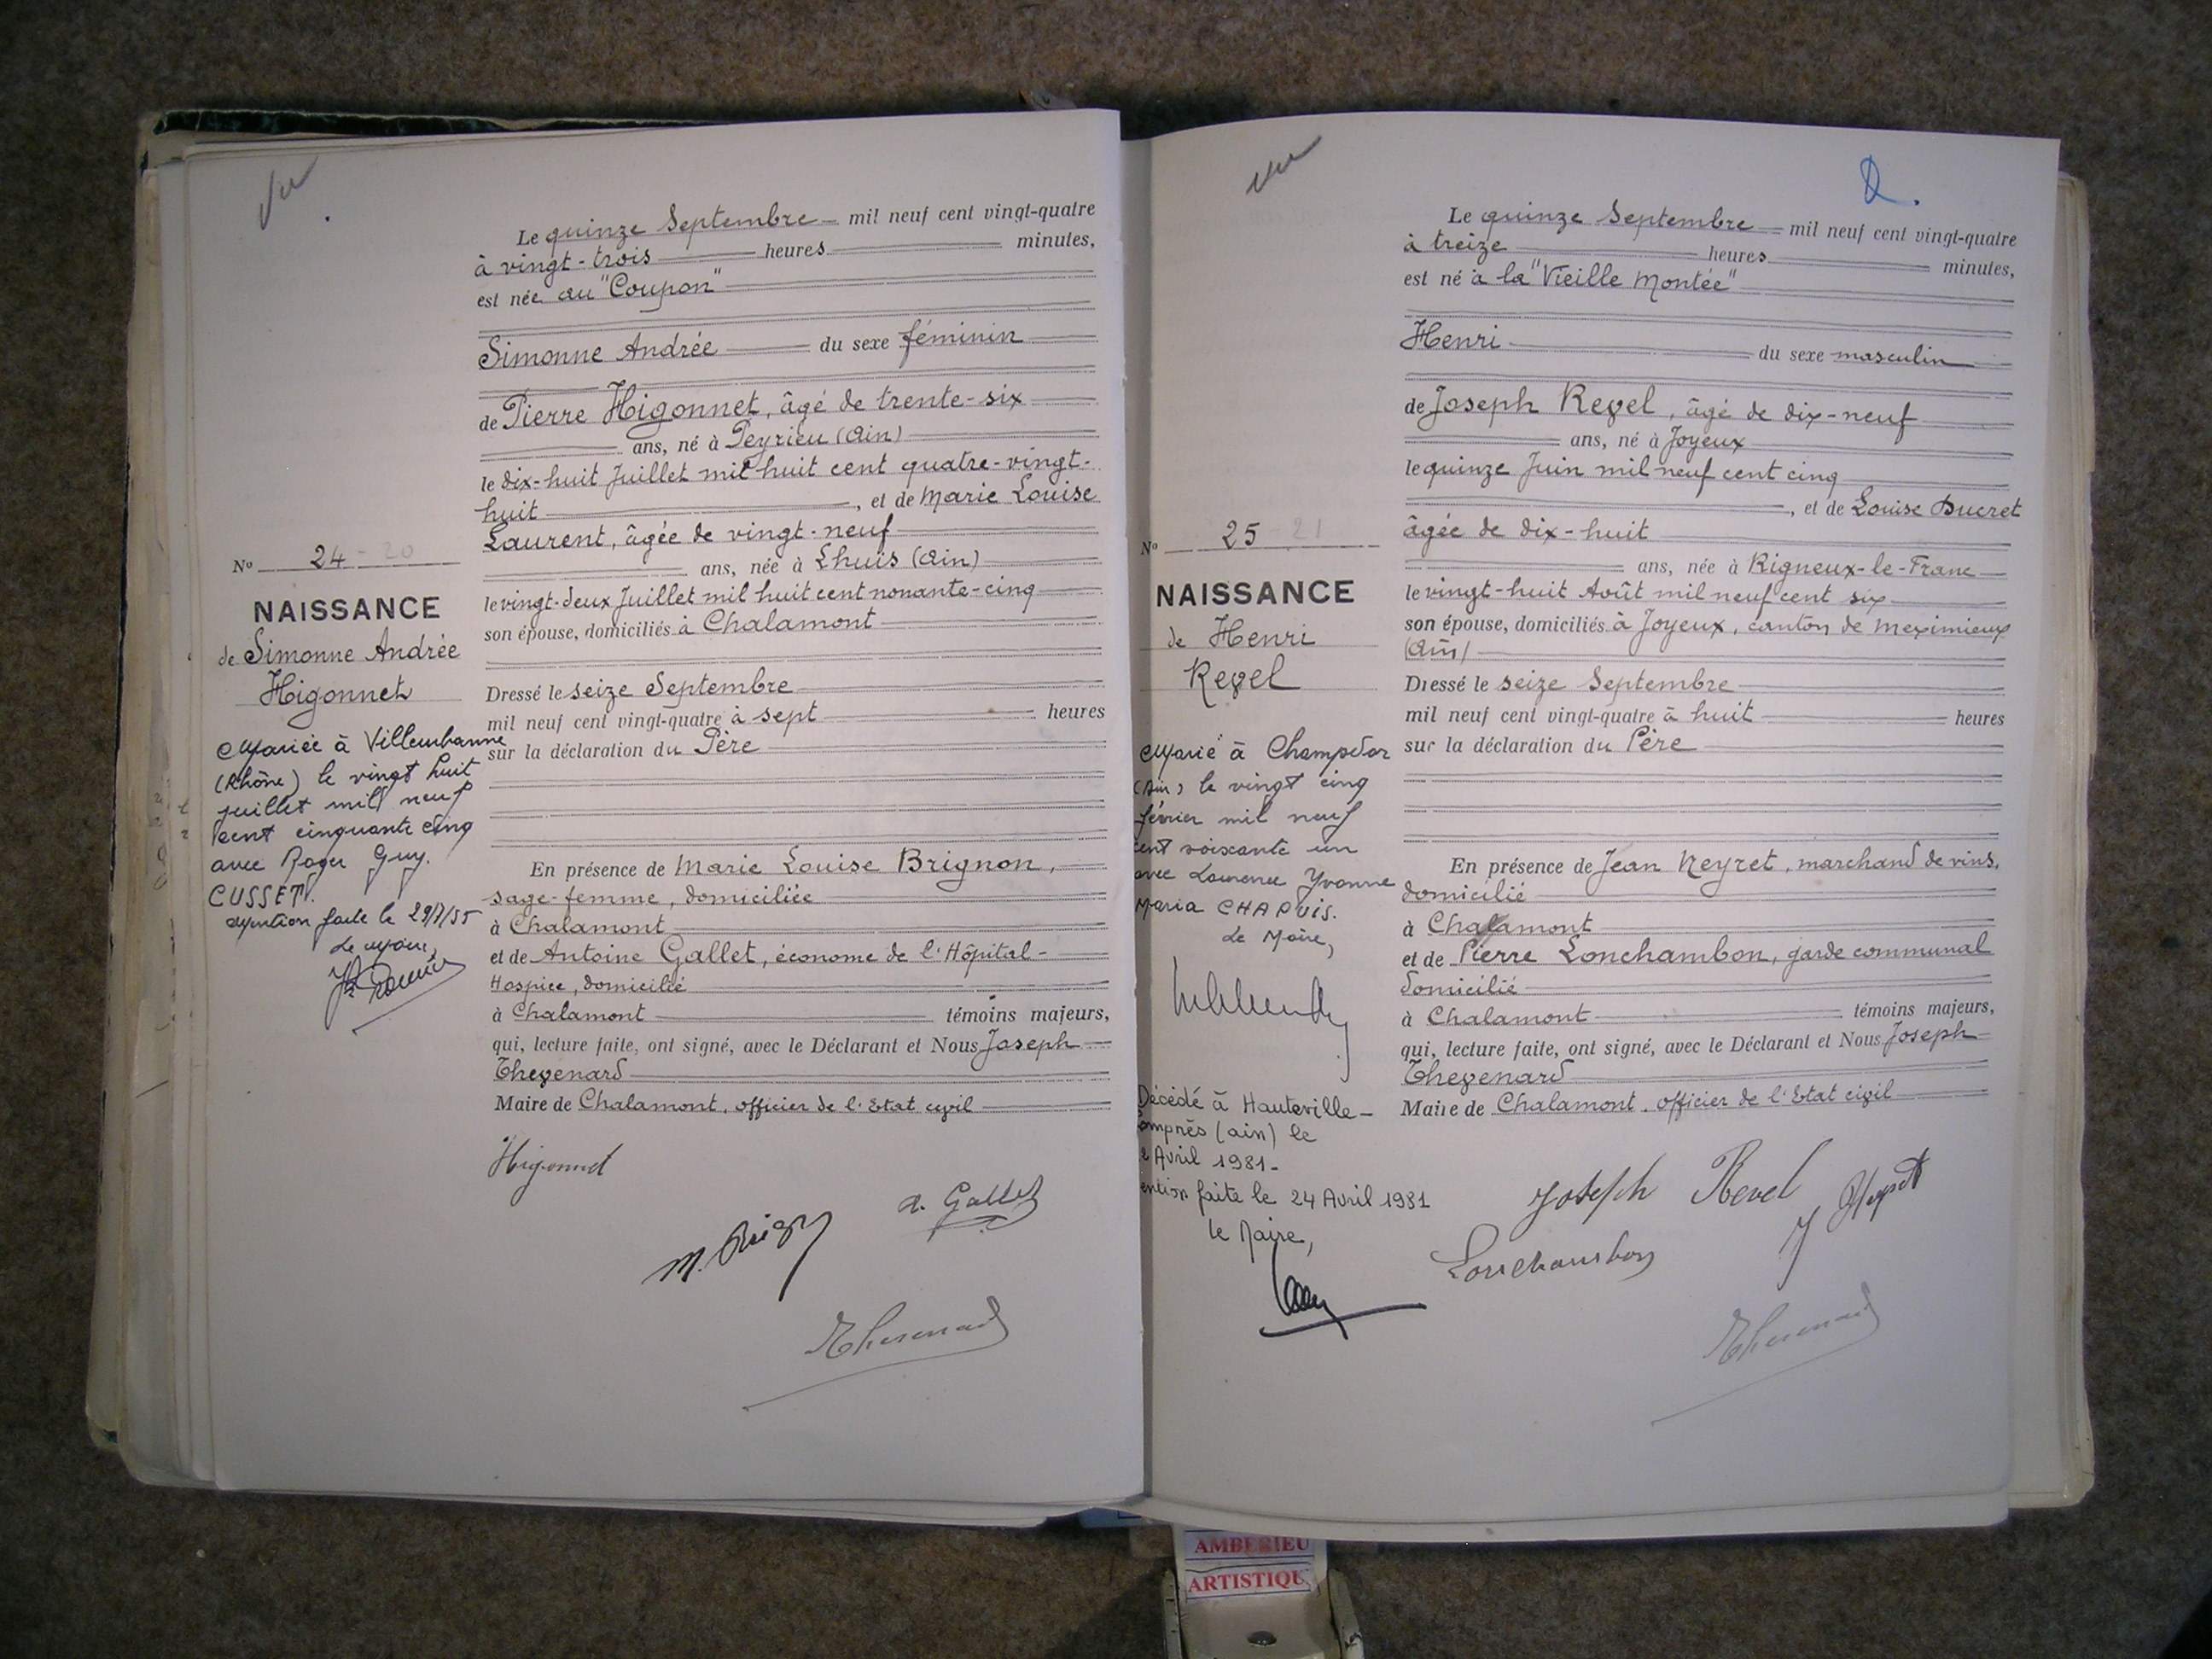 Vu
Le quinze Septembre mil neuf cent vingt-quatre
à vingt-trois heures minutes,
est née au "Coupon"
Simonne Andrée du sexe féminin
de Pierre Higonnet, âgé de trente-six
ans, né à Peyrieu (Ain)
le dix-huit Juillet mil huit cent quatre-vingt-
huit, et de Marie Louise
Laurent, âgée de vingt-neuf
ans, née à Lhuis (Ain)
le vingt-deux Juillet mil huit cent nonante-cinq
son épouse, domiciliés à Chalamont
Dressé le seize Septembre
mil neuf cent vingt-quatre à sept heures
sur la déclaration du Père
En présence de Marie Louise Brignon,
sage-femme, domiciliée
à Chalamont
et de Antoine Gallet, économe de l'Hôpital-
Hospice, domicilié
à Chalamont témoins majeurs,
qui, lecture faite, ont signé, avec le Déclarant et Nous Joseph
Thevenard
Maire de Chalamont, officier de l'Etat civil
Higonnet
A. Gallet
Thevenard
No 24 - 20
NAISSANCE
de Simonne Andrée
Higonnet
Mariée à Villeurbanne
(Rhône) le vingt huit
juillet mil neuf
cent cinquante cinq
avec Roger Guy
CUSSET.
Mention faite le 29/7/55
Le Maire,
Vu
Le quinze Septembre mil neuf cent vingt-quatre
à treize heures minutes,
est né à la "Vieille Montée"
Henri du sexe masculin
de Joseph Revel, âgé de dix-neuf
ans, né à Joyeux
le quinze Juin mil neuf cent cinq
, et de Louise Ducret
âgée de dix-huit
ans, née à Rigneux-le-Franc
le vingt-huit Août mil neuf cent six
son épouse, domiciliés à Joyeux, canton de Meximieux
(Ain)
Dressé le seize Septembre
mil neuf cent vingt-quatre à huit heures
sur la déclaration du Père
En présence de Jean Neyret, marchand de vins,
domicilié
à Chalamont
et de Pierre Lonchambon, garde communal
domicilié
à Chalamont témoins majeurs,
qui, lecture faite, ont signé, avec le Déclarant et Nous Joseph
Thevenard
Maire de Chalamont, officier de l'Etat civil
Joseph Revel
Lonchambon
Thevenard
No 25 - 21
NAISSANCE
de Henri
Revel
Marié à Champdor
(Ain) le vingt cinq
février mil neuf
cent soixante un
avec Laurence Yvonne
Maria CHAPUIS.
Le Maire,
Décédé à Hauteville-
omprès (ain) le
Avril 1981-
ention faite le 24 Avril 1981
le Maire,
AMBERIEU
ARTISTIQU